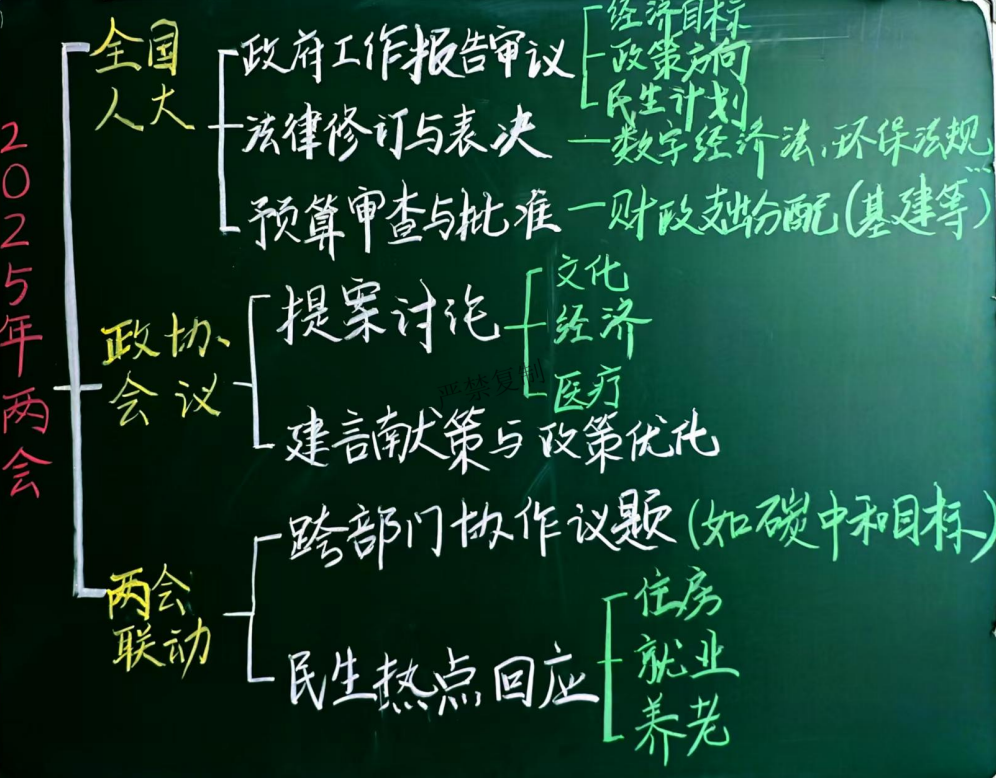 2025年两会
全国
人大
政府工作报告审议
经济目标
政策方向
民生计划
法律修订与表决
数字经济法,环保法规...
预算审查与批准
财政支出分配(基建等)
政协
会议
提案讨论
文化
经济
医疗
严禁复制
建言献策与政策优化
两会
联动
跨部门协作议题(如碳中和目标)
民生热点回应
住房
就业
养老